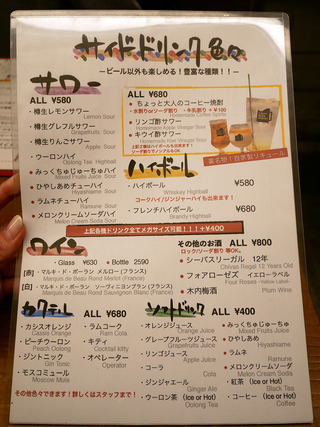 サイドドリンク色々
ービール以外も楽しめる！豊富な種類！！ー
サワー
ALL ¥580
・樽生レモンサワー
Lemon Sour
・樽生グレフルサワー
Grapefruits Sour
・樽生りんごサワー
Apple Sour
・ウーロンハイ
Oolong Tea Highball
・みっくちゅじゅーちゅハイ
Mixed Fruits Juice Sour
・ひやしあめチューハイ
Hiyashiame Sour
・ラムネチューハイ
Ramune Sour
・メロンクリームソーダハイ
Melon Cream Soda Sour
ALL ¥680
・ちょっと大人のコーヒー焼酎
・水割りorソーダ割り ・牛乳割り ＋¥100
Homemade Coffee Spirits
・リンゴ酢サワー
Homemade Apple Vinegar Sour
・キウイ酢サワー
Homemade Kiwi Vinegar Sour
上記2種はハイボールも出来ます！
ソーダ割りでノンアルもOK
裏名物！自家製リキュール
ハイボール
・ハイボール ¥580
Whiskey Highball
コークハイ/ジンジャーハイも出来ます！
・フレンチハイボール ¥680
Brandy Highball
上記各種ドリンク全てメガサイズ可能！！！＋¥400
ワイン
・Glass ¥630 ・Bottle 2590
【赤】・マルキ・ド・ボーラン メルロー（フランス）
Marquis de Beau Rond Merlot (France)
【白】・マルキ・ド・ボーラン ソーヴィニヨンブラン（フランス）
Marquis de Beau Rond Sauvignon Blanc (France)
その他のお酒 ALL ¥800
ロック/ソーダ割り 等OK
・シーバスリーガル 12年
Chivas Regal 12 Years Old
・フォアローゼズ イエローラベル
Four Roses -Yellow Label-
・木内梅酒
Plum Wine
カクテル
ALL ¥680
・カシスオレンジ
Cassis Orange
・ピーチウーロン
Peach Oolong
・ジントニック
Gin Tonic
・モスコミュール
Moscow Mule
・ラムコーク
Ram Cola
・キティ
Cocktail kitty
・オペレーター
Operator
その他色々できます！詳しくはスタッフまで！
ソフトドリンク
ALL ¥400
・オレンジジュース
Orange Juice
・グレープフルーツジュース
Grapefruits Juice
・リンゴジュース
Apple Juice
・コーラ
Cola
・ジンジャエール
Ginger Ale
・ウーロン茶 (Ice or Hot)
Oolong Tea
・みっくちゅじゅーちゅ
Mixed Juice
・ひやしあめ
Hiyashiame
・ラムネ
Ramune
・メロンクリームソーダ
Melon Cream Soda
・紅茶 (Ice or Hot)
Black Tea
・コーヒー (Ice or Hot)
Coffee